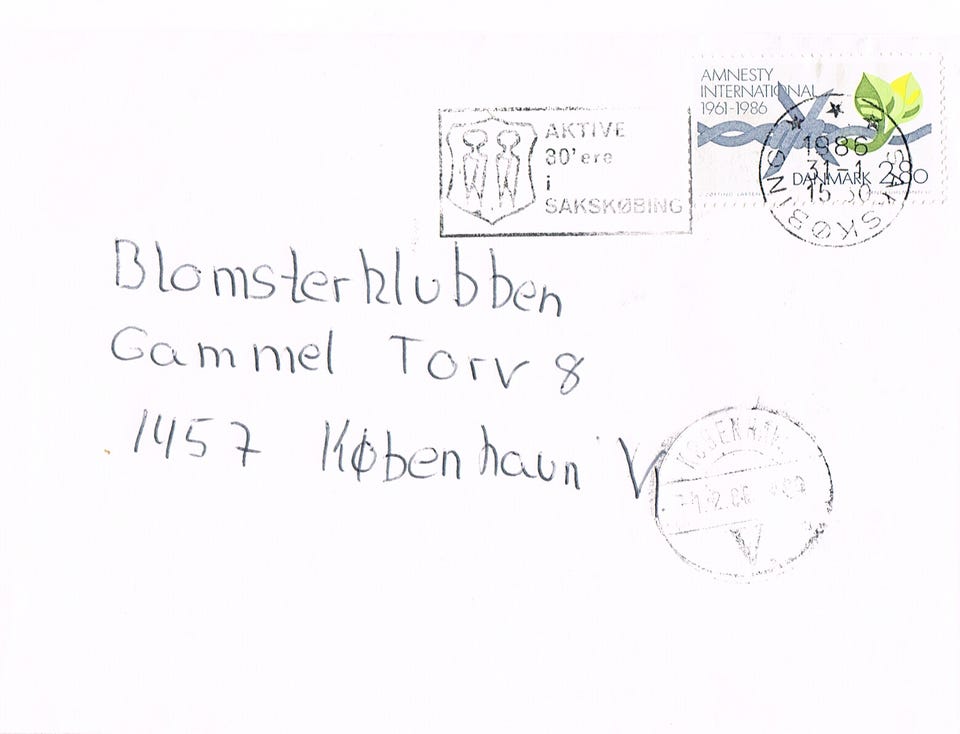 AMNESTY
INTERNATIONAL
1961-1986
DANMARK 2.80
AKTIVE
30'ere
i
SAKSKØBING
1986
31-1
15 30
SAKSKØBING
Blomsterklubben
Gammel Torv 8
1457 København V
KØBENHAVN
V